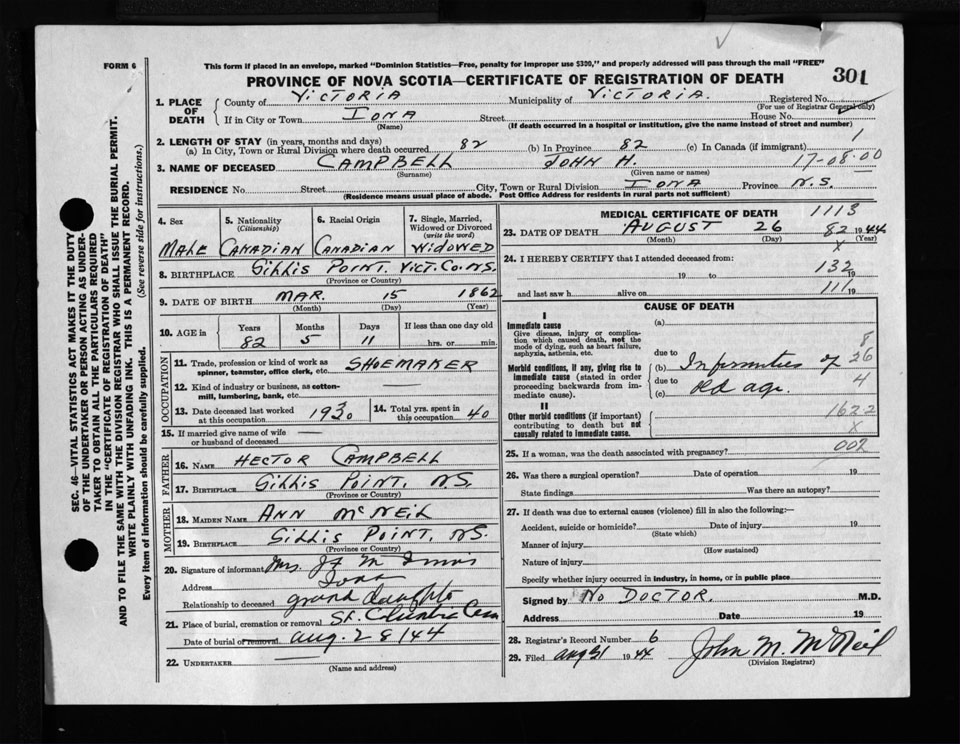 FORM 6
This form if placed in an envelope, marked "Dominion Statistics—Free, penalty for improper use $300," and properly addressed will pass through the mail "FREE"
PROVINCE OF NOVA SCOTIA—CERTIFICATE OF REGISTRATION OF DEATH
301
1. PLACE OF DEATH
County of VICTORIA Municipality of VICTORIA. Registered No.
(For use of Registrar General only)
If in City or Town IONA Street House No.
(Name) (If death occurred in a hospital or institution, give the name instead of street and number)
2. LENGTH OF STAY (in years, months and days)
(a) In City, Town or Rural Division where death occurred 82 (b) In Province 82 (c) In Canada (if immigrant)
1
17-08-00
3. NAME OF DECEASED CAMPBELL JOHN H.
(Surname) (Given name or names)
RESIDENCE No. Street City, Town or Rural Division IONA Province N.S.
(Residence means usual place of abode. Post Office Address for residents in rural parts not sufficient)
4. Sex MALE
5. Nationality (Citizenship) CANADIAN
6. Racial Origin CANADIAN
7. Single, Married, Widowed or Divorced (write the word) WIDOWED
8. BIRTHPLACE GILLIS POINT. VICT. CO. N.S.
(Province or Country)
9. DATE OF BIRTH MAR. 15 1862
(Month) (Day) (Year)
10. AGE in Years Months Days If less than one day old
82 5 11 hrs. or min.
OCCUPATION
11. Trade, profession or kind of work as spinner, teamster, office clerk, etc. SHOEMAKER
12. Kind of industry or business, as cotton-mill, lumbering, bank, etc. —
13. Date deceased last worked at this occupation 1930 14. Total yrs. spent in this occupation 40
15. If married give name of wife or husband of deceased —
FATHER
16. NAME HECTOR CAMPBELL
17. BIRTHPLACE GILLIS POINT, N.S.
(Province or Country)
MOTHER
18. MAIDEN NAME ANN McNEIL
19. BIRTHPLACE GILLIS POINT, N.S.
(Province or Country)
20. Signature of informant Mrs.
Address Iona
Relationship to deceased grand daughter
21. Place of burial, cremation or removal St. Cem
Date of burial or removal Aug. 28/44
22. UNDERTAKER —
(Name and address)
MEDICAL CERTIFICATE OF DEATH 1113
23. DATE OF DEATH AUGUST 26 82 1944
(Month) (Day) X (Year)
24. I HEREBY CERTIFY that I attended deceased from:
19 to 132 19
and last saw h alive on 111 19
CAUSE OF DEATH
I
Immediate cause
Give disease, injury or complication which caused death, not the mode of dying, such as heart failure, asphyxia, asthenia, etc.
Morbid conditions, if any, giving rise to immediate cause (stated in order proceeding backwards from immediate cause).
II
Other morbid conditions (if important) contributing to death but not causally related to immediate cause.
(a)
due to
(b) Infirmities of
due to
(c) old age.
8
26
4
1622
X
25. If a woman, was the death associated with pregnancy? 002
26. Was there a surgical operation? Date of operation 19
State findings Was there an autopsy?
27. If death was due to external causes (violence) fill in also the following:—
Accident, suicide or homicide? Date of injury 19
(State which)
Manner of injury
(How sustained)
Nature of injury
Specify whether injury occurred in industry, in home, or in public place
Signed by NO DOCTOR. M.D.
Address Date 19
28. Registrar's Record Number 6
29. Filed Aug 31 1944 John M. McNeil
(Division Registrar)
SEC. 46—VITAL STATISTICS ACT MAKES IT THE DUTY
OF THE UNDERTAKER OR PERSON ACTING AS UNDER-
TAKER TO OBTAIN ALL THE PARTICULARS REQUIRED
IN THE "CERTIFICATE OF REGISTRATION OF DEATH"
AND TO FILE THE SAME WITH THE DIVISION REGISTRAR WHO SHALL ISSUE THE BURIAL PERMIT.
WRITE PLAINLY WITH UNFADING INK. THIS IS A PERMANENT RECORD.
Every item of information should be carefully supplied. (See reverse side for instructions.)